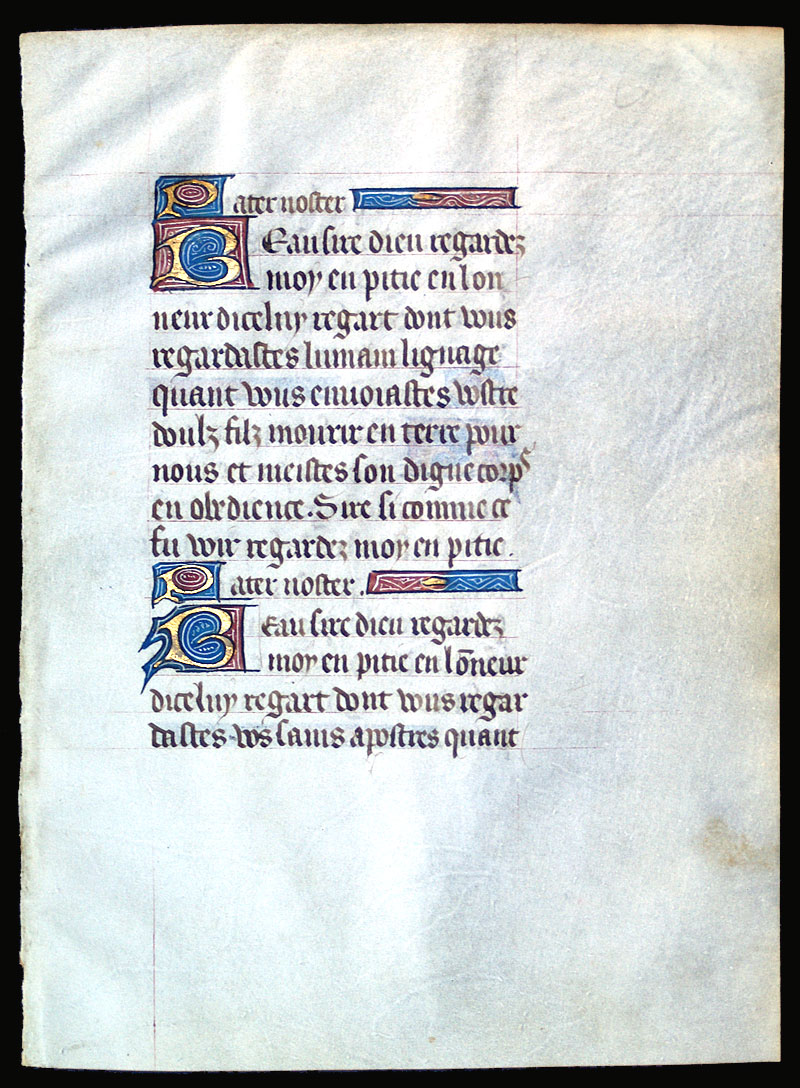 Pater noster
BEau sire dieu regardez
moy en pitie en lon
neur diceluy regart dont vous
regardastes lumain lignage
quant vous enuoiastes vostre
doulz filz mourir en terre pour
nous et meistes son digne corps
en obedience. Sire si comme ce
fu voir regardez moy en pitie.
Pater noster.
BEau sire dieu regardez
moy en pitie en lōneur
diceluy regart dont vous regar
dastes vos sains apostres quant